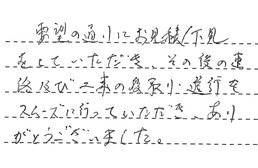 要望の通りにお見積(下見
をしていただき、その後の連
絡及び工事の段取り・遂行を
スムーズに行っていただき、あり
がとうございました。